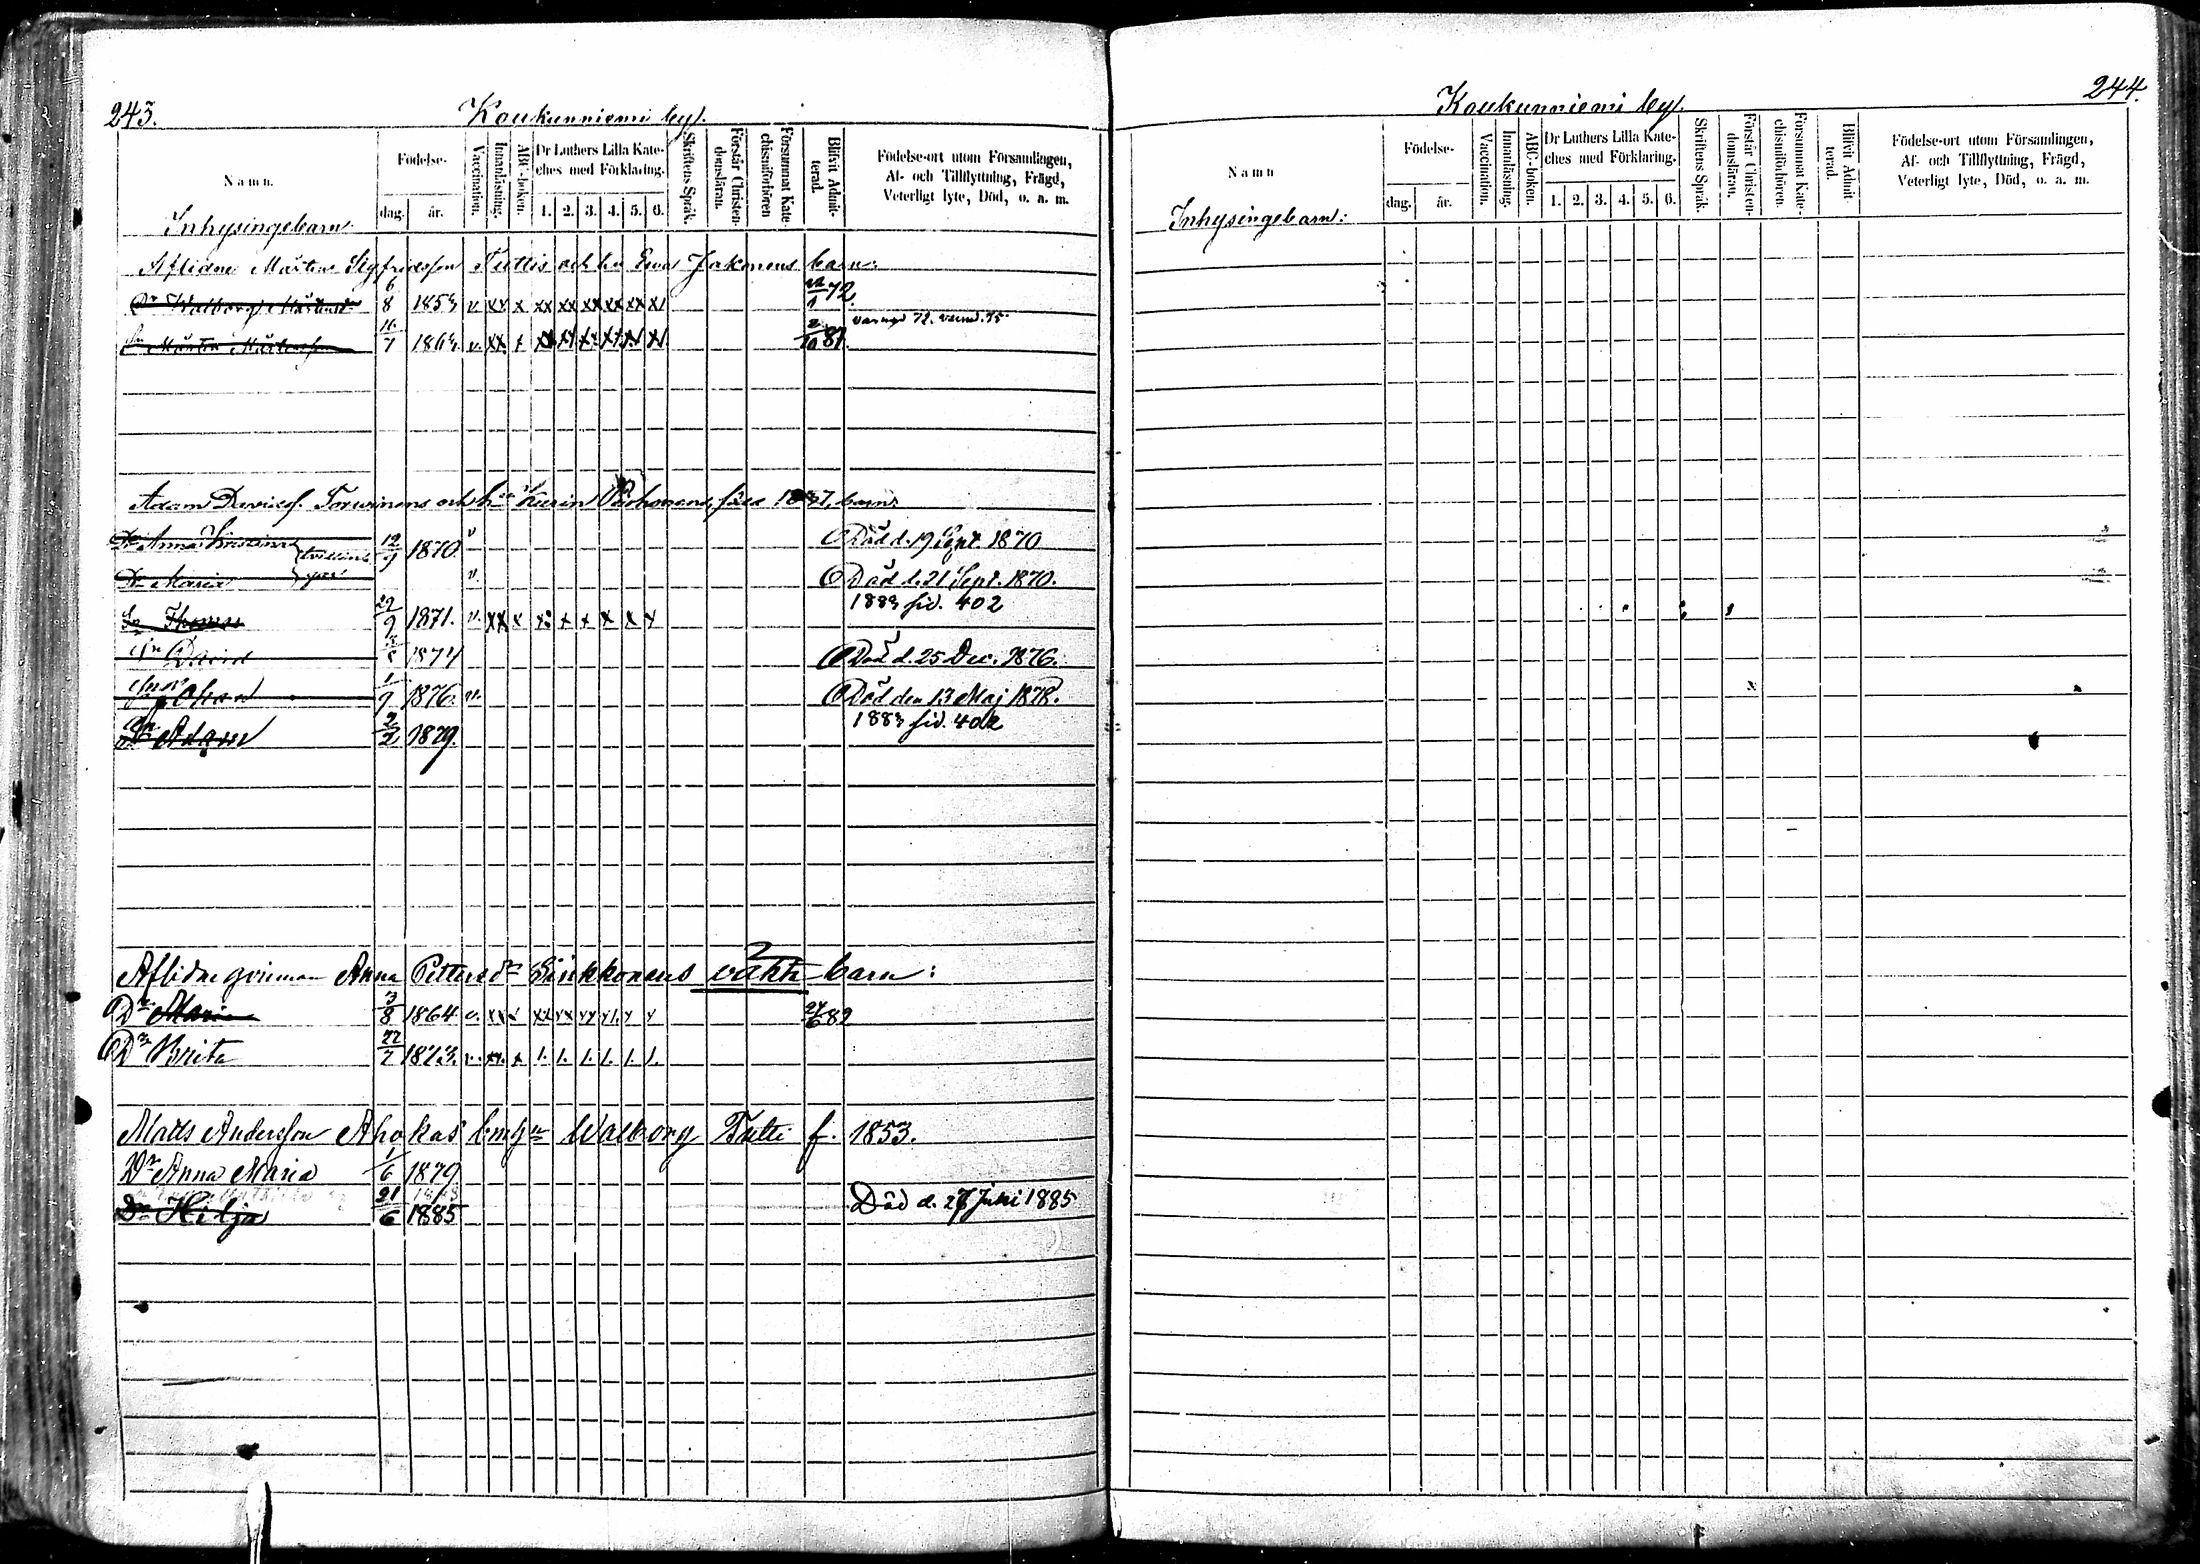 243.
Koukunniemi by.
Namn.
Födelse-
dag.
år.
Vaccination.
Innanläsning.
ABC-boken.
Dr Luthers Lilla Kate-
ches med Förklaring.
1. 2. 3. 4. 5. 6.
Skriftens Språk.
Förstår Christen-
domsläran.
Försummat Kate-
chismiförhören
Blifvit Admit-
terad.
Födelse-ort utom Församlingen,
Af- och Tillflyttning, Frägd,
Veterligt lyte, Död, o. a. m.
Inhysingebarn.
Aflidne Mårten Sigfridsson Tuttis och hu Ewa Jakonens barn:
Dr Walborg Mårtensd 6/8 1853 v. xx x xx xx xx xx xx x 72.
Sn Mårten Mårtensson 1863 v. xx x 2/10 81.
Adam Davidsf. Torvinens och hu Karin barn.
Dr Anna Kristina 12/9 1870 v Död d. 19 Sept. 1870
Dr Maria v. Död d. 21 Sept. 1870.
Sn Thomas 29/9 1871. v. xx x x x x x x x 1883 sid. 402
Sn David 1874 Död d. 25 Dec. 1876.
Sn Johan 1/9 1876. v. Död den 13 Maj 1878.
Sn Adam 2/2 1879. 1883 sid. 402
Aflidne qvinnan Anna Pettersdr Sinkkonens oäkta barn:
Dr Maria 3/8 1864 v. xx x xx 24/6 82
Dr Brita 22/7 1873. v. xx. x 1. 1. 1. 1. 1. 1.
Matts Andersson Ahokas' Walborg Tutti f. 1853.
Dr Anna Maria 1/6 1879
Dr Hilja 21/6 1885 Död d. 27 Juni 1885
244.
Koukunniemi by.
Namn
Födelse-
dag.
år.
Vaccination.
Innanläsning.
ABC-boken.
Dr Luthers Lilla Kate-
ches med Förklaring.
1. 2. 3. 4. 5. 6.
Skriftens Språk.
Förstår Christen-
domsläran.
Försummat Kate-
chismiförhören.
Blifvit Admit-
terad.
Födelse-ort utom Församlingen,
Af- och Tillflyttning, Frägd,
Veterligt lyte, Död, o. a. m.
Inhysingebarn: